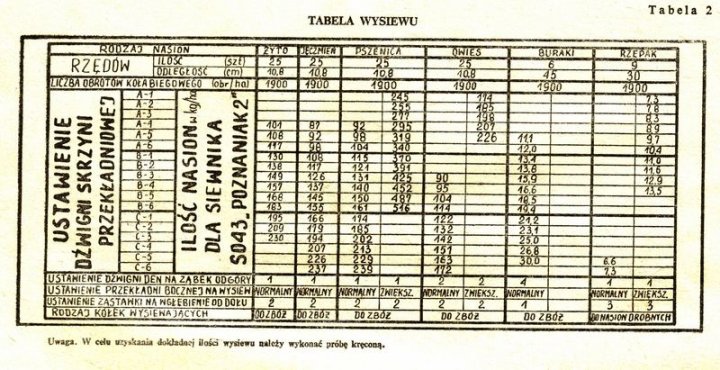 Tabela 2
TABELA WYSIEWU
RODZAJ NASION ŻYTO JĘCZMIEŃ PSZENICA OWIES BURAKI RZEPAK
RZĘDÓW ILOŚĆ (szt) 25 25 25 25 6 9
ODLEGŁOŚĆ (cm) 10,8 10,8 10,8 10,8 45 30
LICZBA OBROTÓW KOŁA BIEGOWEGO (obr/ha) 1900 1900 1900 1900 1900 1900
USTAWIENIE DŹWIGNI SKRZYNI PRZEKŁADNIOWEJ
ILOŚĆ NASION w kg/ha DLA SIEWNIKA S043 „POZNANIAK 2"
A-1 245 174 7,3
A-2 255 185 7,8
A-3 277 198 8,3
A-4 101 87 92 295 207 8,9
A-5 108 92 98 319 226 11,1 9,7
A-6 117 98 104 340 12,0 10,4
B-1 130 108 115 370 13,4 11,0
B-2 138 117 121 391 13,8 11,6
B-3 149 126 131 425 90 15,9 12,9
B-4 157 137 140 452 95 16,6 13,5
B-5 168 145 150 487 104 18,5
B-6 183 155 161 516 114 19,8
C-1 195 166 174 122 21,2
C-2 209 179 185 132 23,1
C-3 230 194 202 142 25,0
C-4 207 213 151 26,8
C-5 226 229 163 30,0 6,6
C-6 237 239 172 7,3
USTAWIENIE DŹWIGNI DEN NA ZĄBEK OD GÓRY 1 1 1 1 2 2 4 1 1
USTAWIENIE PRZEKŁADNI BOCZNEJ NA WYSIEW NORMALNY NORMALNY NORMALNY ZWIĘKSZ. NORMALNY ZWIĘKSZ. NORMALNY NORMALNY ZWIĘKSZ.
USTAWIENIE ZASTAWKI NA WGŁĘBIENIE OD DOŁU 2 2 2 2 2 2 1 3 3
RODZAJ KÓŁEK WYSIEWAJĄCYCH DO ZBÓŻ DO ZBÓŻ DO ZBÓŻ DO ZBÓŻ DO ZBÓŻ DO NASION DROBNYCH
Uwaga. W celu uzyskania dokładnej ilości wysiewu należy wykonać próbę kręconą.